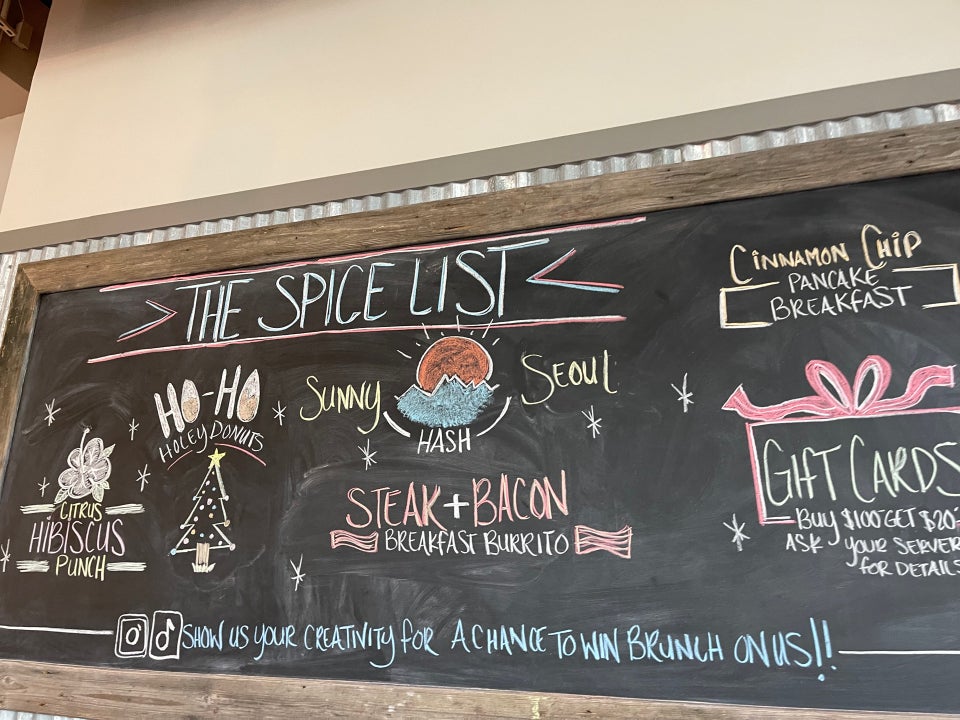 THE SPICE LIST
CINNAMON CHIP
PANCAKE
BREAKFAST
HO-HO
HOLEY DONUTS
SUNNY SEOUL
HASH
CITRUS
HIBISCUS
PUNCH
STEAK + BACON
BREAKFAST BURRITO
GIFT CARDS
BUY $100 GET $20
ASK YOUR SERVER
FOR DETAILS
SHOW US YOUR CREATIVITY FOR A CHANCE TO WIN BRUNCH ON US!!